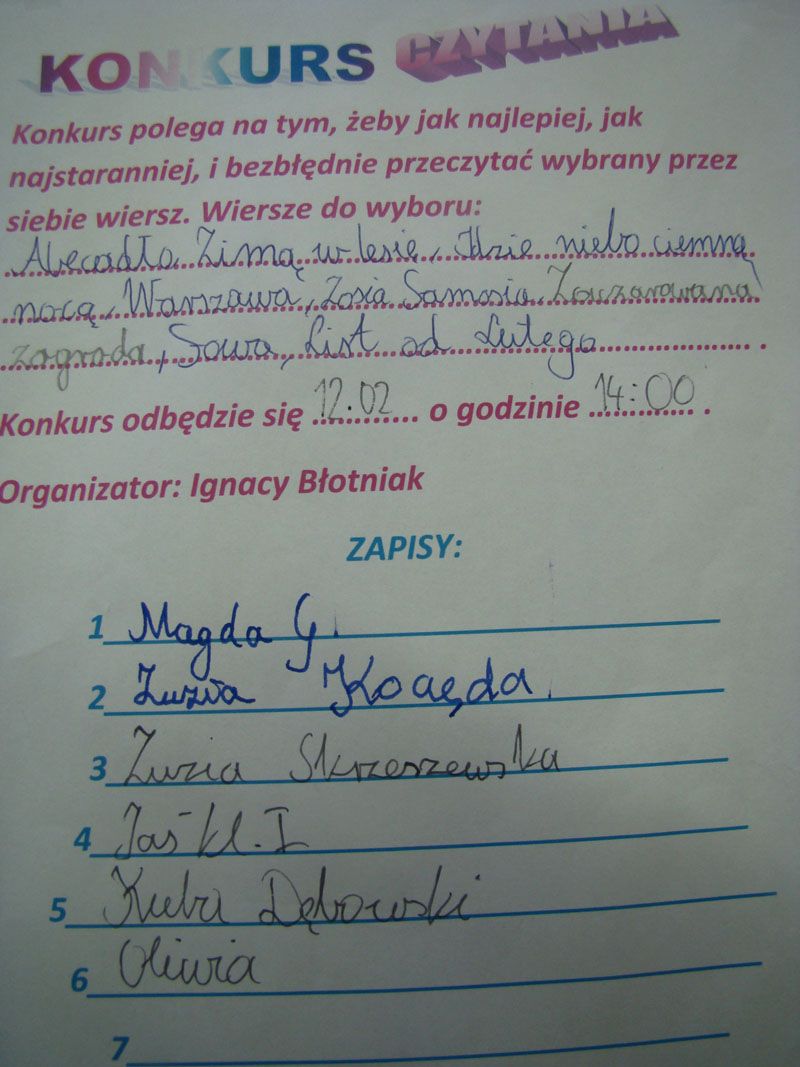 KONKURS CZYTANIA
Konkurs polega na tym, żeby jak najlepiej, jak
najstaranniej, i bezbłędnie przeczytać wybrany przez
siebie wiersz. Wiersze do wyboru:
Abecadło Zimą w lesie, Idzie niebo ciemną
nocą, Warszawa, Zosia Samosia, Zaczarowana
zagroda, Sowa, List od Lutego
Konkurs odbędzie się 12.02 o godzinie 14:00.
Organizator: Ignacy Błotniak
ZAPISY:
1 Magda G.
2 Zuzia
3 Zuzia Skrzeszewska
4 Jaś kl. I
5 Kuba Dębowski
6 Oliwia
7